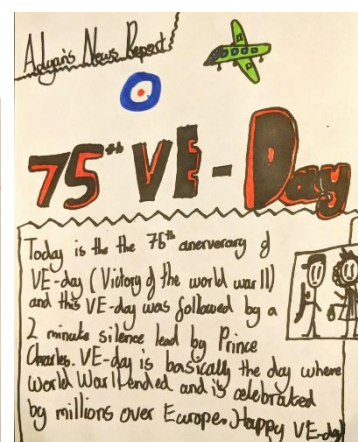 Adyan's News Report
75th VE-Day
Today is the the 75th anerverary of
VE-day (Victory of the world war II)
and this VE-day was followed by a
2 minute silence lead by Prince
Charles. VE-day is basically the day where
World War II ended and is celebrated
by millions over Europe. Happy VE-day